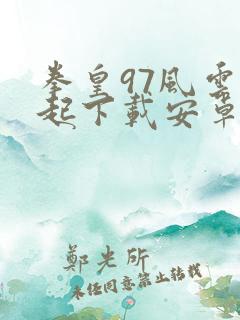 拳皇97風雲
起下載安卓
鄭光所
未经同意禁止转载